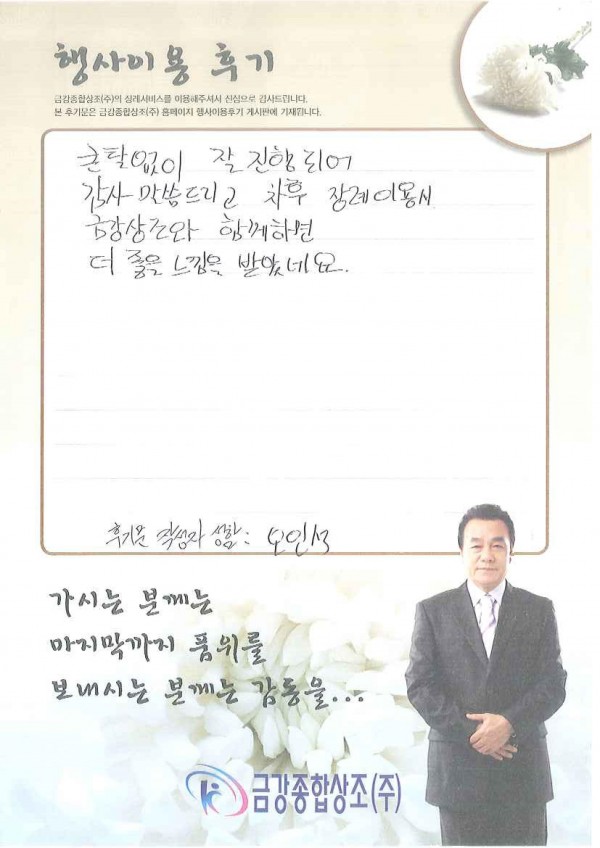 행사이용 후기
금강종합상조(주)의 장례서비스를 이용해주셔서 진심으로 감사드립니다.
본 후기문은 금강종합상조(주) 홈페이지 행사이용후기 게시판에 기재됩니다.
큰탈없이 잘 진행되어
감사 말씀드리고 차후 장례이용시
금강상조와 함께하면
더 좋은 느낌을 받았네요.
후기문 작성자 성함: 오인석
가시는 분께는
마지막까지 품위를
보내시는 분께는 감동을...
금강종합상조(주)